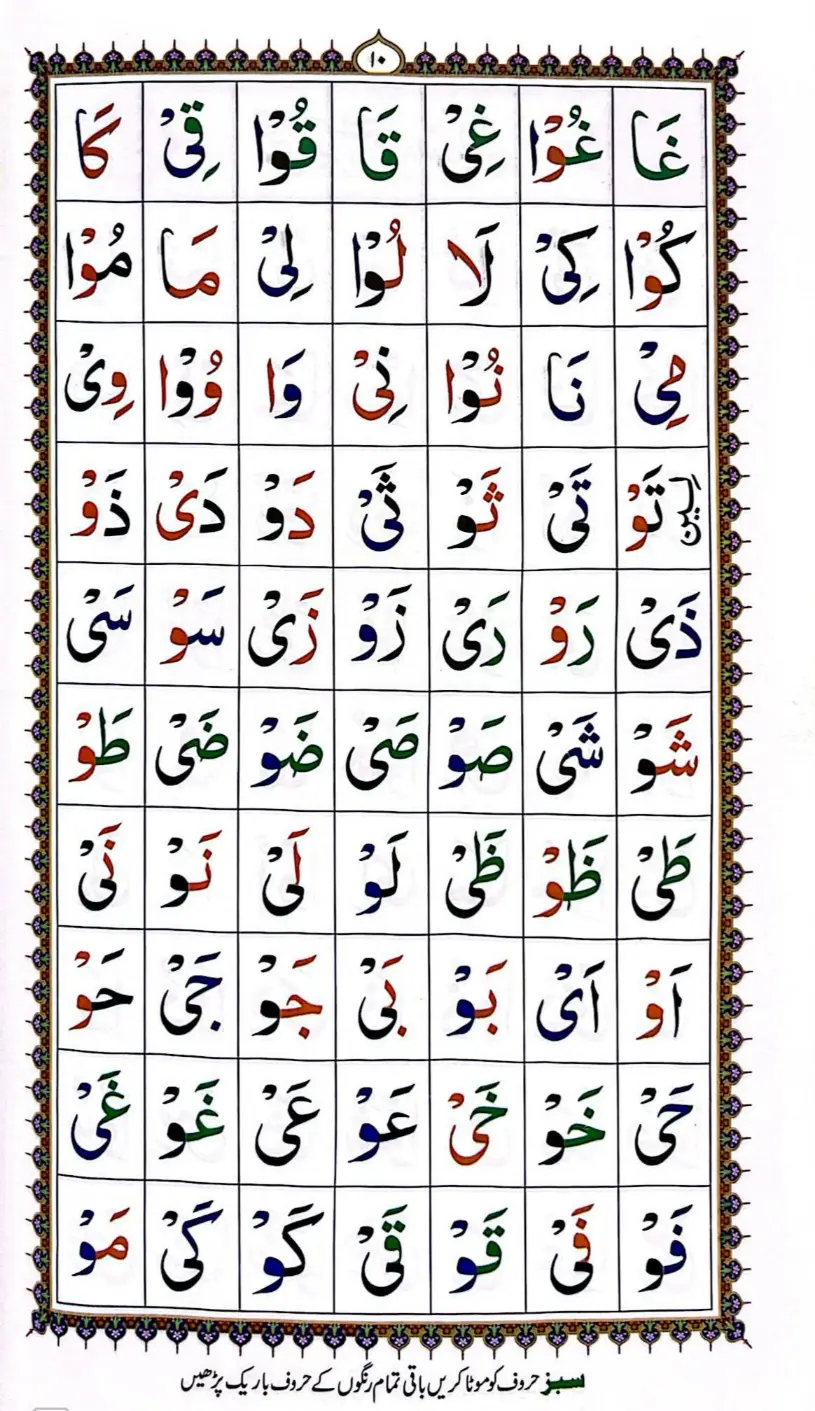 ١٠
غَا غُوْا غِىْ قَا قُوْا قِىْ كَا
كُوْا كِىْ لَا لُوْا لِىْ مَا مُوْا
مِىْ نَا نُوْا نِىْ وَا وُوْا وِىْ
لِین تَوْ تَىْ ثَوْ ثَىْ دَوْ دَىْ ذَوْ
ذَىْ رَوْ رَىْ زَوْ زَىْ سَوْ سَىْ
شَوْ شَىْ صَوْ صَىْ ضَوْ ضَىْ طَوْ
طَىْ ظَوْ ظَىْ لَوْ لَىْ نَوْ نَىْ
اَوْ اَىْ بَوْ بَىْ جَوْ جَىْ حَوْ
حَىْ خَوْ خَىْ عَوْ عَىْ غَوْ غَىْ
فَوْ فَىْ قَوْ قَىْ كَوْ كَىْ مَوْ
سبز حروف کو موٹا کریں باقی تمام رنگوں کے حروف باریک پڑھیں